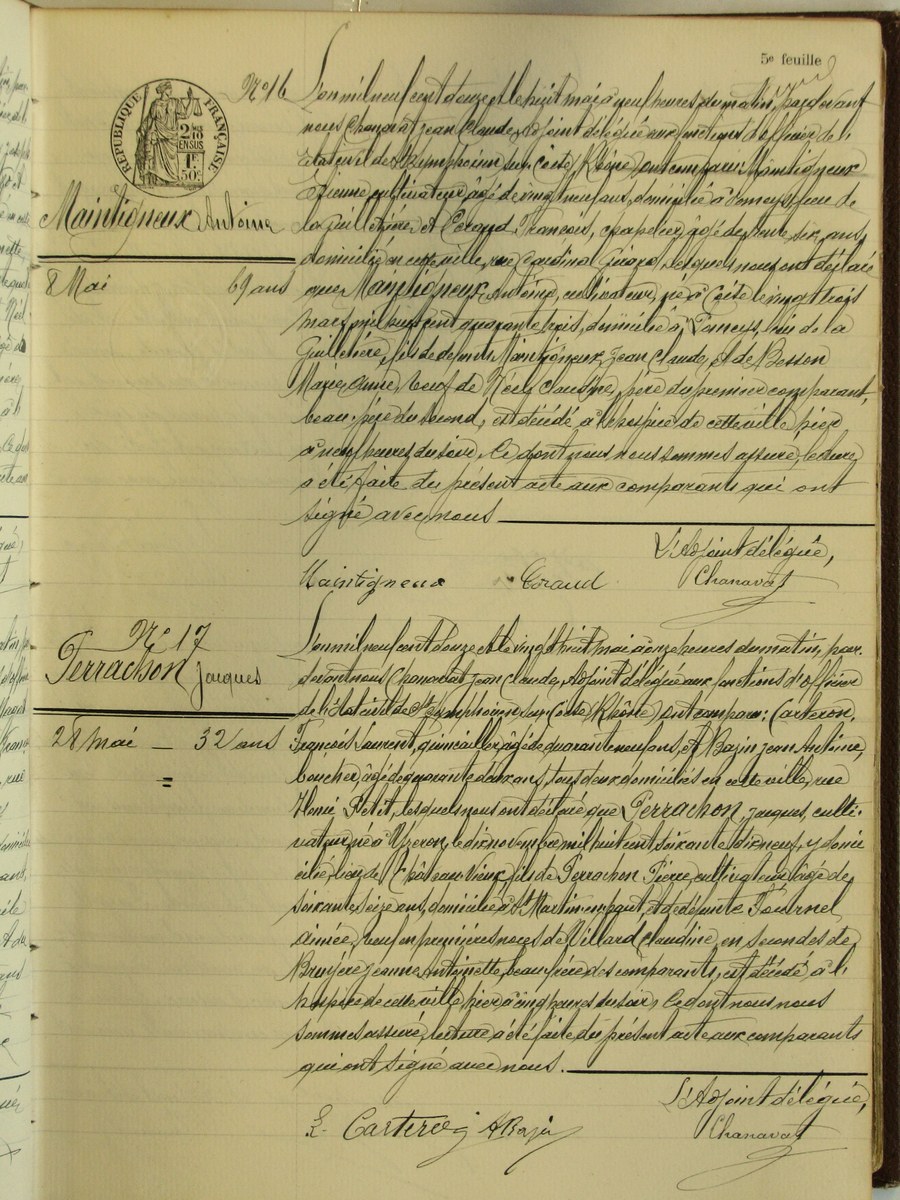 5e feuille
RÉPUBLIQUE FRANÇAISE
2/10 EN SUS
1F 50c
No 16
Maintigneux Antoine
8 Mai 69 ans
L'an mil neuf cent douze et le huit mai à neuf heures du matin, Par devant
nous Chanavat Jean Claude, Adjoint délégué aux fonctions d'officier de l'
Etat civil de St Symphorien sur Coise (Rhône) ont comparu: Maintigneux
Etienne cultivateur âgé de vingt neuf ans, domicilié à Pomeys, lieu de
la Guilletière, Et Coraud François, chapelier, âgé de trente six ans,
domicilié en cette ville, rue Cardinal Girard, lesquels nous ont déclaré
que Maintigneux Antoine, cultivateur, né à Coise le vingt trois
mars mil huit cent quarante trois, domicilié à Pomeys, lieu de la
Guilletière, fils de défunts Maintigneux Jean Claude, et de Besson
Marie Anne, veuf de Claudine, père du premier comparant,
beau-père du second, est décédé à l'hospice de cette ville hier
à neuf heures du soir. Ce dont nous nous sommes assuré, lecture
a été faite du présent acte aux comparants qui ont
signé avec nous
L'Adjoint délégué,
Maintigneux Coraud Chanavat
No 17
Perrachon Jacques
28 mai — 32 ans
L'an mil neuf cent douze et le vingt huit mai à onze heures du matin, par
devant nous Chanavat Jean Claude, Adjoint délégué aux fonctions d'officier
de l'Etat civil de St Symphorien sur Coise (Rhône) ont comparu: Carteron,
François Laurent, quincailler, âgé de quarante neuf ans, et Bazin Jean Antoine,
boucher, âgé de quarante deux ans, tous deux domiciliés en cette ville, rue
Henri Petit, lesquels nous ont déclaré que Perrachon, Jacques, culti-
vateur, né à Yzeron, le dix novembre mil huit cent soixante dix neuf, y domi
cilié, lieu de Château Vieux, fils de Perrachon Pierre, cultivateur, âgé de
soixante seize ans, domicilié à St Martin en haut, et de défunte Fournel
aimée, veuf en premières noces de Villard Claudine, en secondes de
Bruyère Jeanne Antoinette, beau frère des comparants, est décédé à l'
hospice de cette ville, hier à cinq heures du soir, Ce dont nous nous
sommes assuré, lecture a été faite du présent acte aux comparants
qui ont signé avec nous.
L'Adjoint délégué,
L. Carteron A Bazin Chanavat